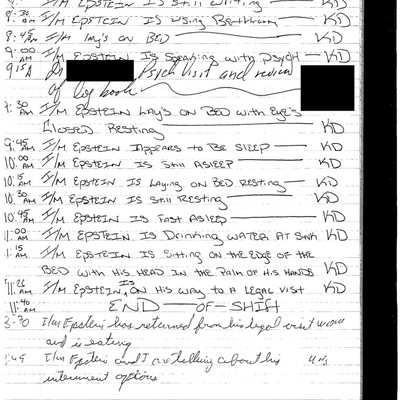 I/M EPSTEIN Is Still Writing KD
8:30 AM I/M EPSTEIN Is Using Bathroom KD
8:45 AM I/M Lay's on BED KD
9:00 AM I/M EPSTEIN Is Speaking with Psych KD
9:15 A Dr Psych visit and review
of log book
9:30 AM I/M EPSTEIN LAY's ON BED with EyE's
CLOSED Resting KD
9:45 AM I/M EPSTEIN Appears to Be SLEEP KD
10:00 AM I/M EPSTEIN IS Still ASLEEP KD
10:15 AM I/M EPSTEIN Is Laying on BED RESTING KD
10:30 AM I/M EPSTEIN Is Still Resting KD
10:45 AM I/M EPSTEIN IS FAST ASLEEP KD
11:00 AM I/M EPSTEIN IS Drinking WATER AT SINK KD
11:15 AM I/M EPSTEIN Is Sitting on the EDGE OF the
BED with His HEAD IN the Palm OF His HANDS KD
11:26 AM I/M EPSTEIN, IS ON His WAY to A LEGAL VISIT KD
11:40 AM END OF SHIFT
3:30 I/m Epstein has returned from his legal visit now
and is eating
:45 I/m Epstein and I are talking about his
internment options